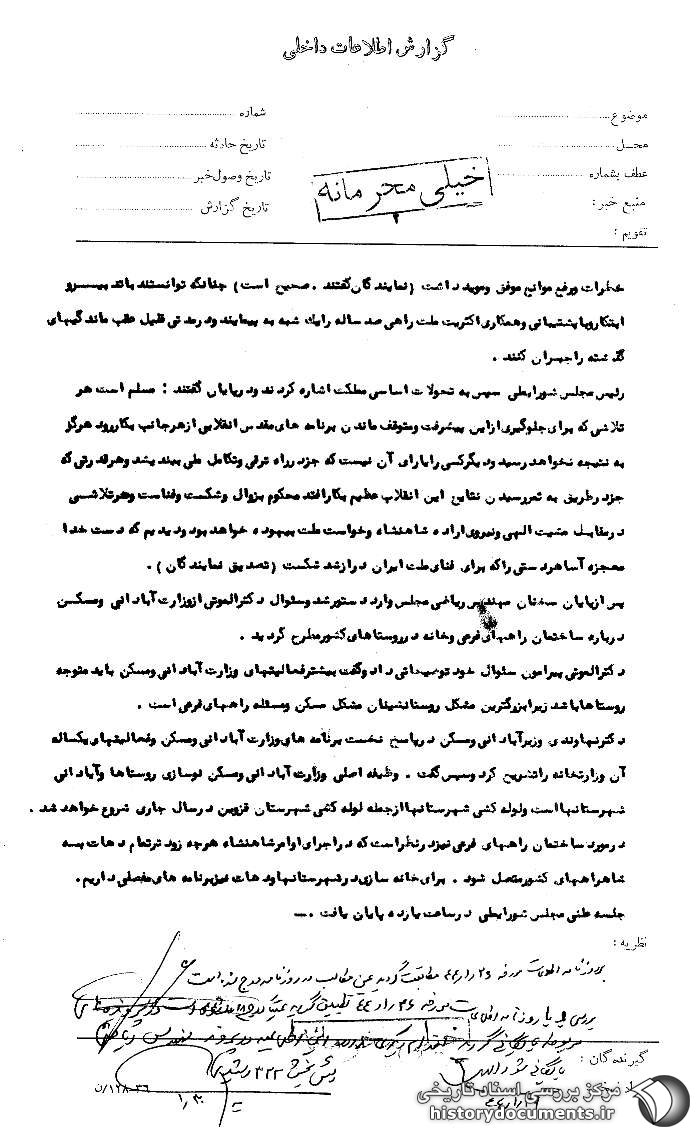 گزارش اطلاعات داخلی
موضوع شماره
محل تاریخ حادثه
عطف بشماره تاریخ وصول خبر
منبع خبر: تاریخ گزارش
تقویم :
خیلی محرمانه
خطرات ورفع موانع موفق وموید داشت (نمایندگان گفتند . صحیح است) چنانگه توانستند باند بیسرو
ابتکار وپا پشتیبانی وهمکاری اکثریت ملت راهی صد ساله رایك شبه به پیمایند ودر مدتی قلیل عقب ماندگیهای
گذشته راجبران کنند .
رئیس مجلس شورایملی سپس به تحولات اساسی مملکت اشاره کردند ودرپایان گفتند : مسلم است هر
تلاشی که برای جلوگیری ازاین پیشرفت ومتوقف ماندن برنامه های مقدس انقلابی ازهرجانب بکاررود هرگز
به نتیجه نخواهد رسید ودیگرکسی رایارای آن نیست که جزدرراه ترقی وتکامل ملی بیندیشد وهرقدرتی که
جزدرطریق به ثمررسیدن نتایج این انقلاب عظیم بکارافتد محکوم بزوال وشکست وفناست وهرتلاشی
درمقابل مشیت الهی ونیروی اراده شاهنشاه وخواست ملت بیهوده خواهد بود ودیدیم که دست خدا
معجزه آسا هردستی راکه برای فنای ملت ایران درازشد شکست (تصدیق نمایندگان) .
پس ازپایان سخنان مهندس ریاضی مجلس وارد دستورشد وسئوال دکترالموتی ازوزارت آبادانی ومسکن
درباره ساختمان راههای فرعی وخانه درروستاهای کشورمطرح گردید .
دکترالموتی پیرامون سئوال خود توضیحاتی داد وگفت بیشترفعالیتهای وزارت آبادانی ومسکن باید متوجه
روستاهاباشد زیرابزرگترین مشکل روستانشینان مشکل مسکن ومسئله راههای فرعی است .
دکترنهاوندی وزیرآبادانی ومسکن درپاسخ نخست برنامه های وزارت آبادانی ومسکن وفعالیتهای یکساله
آن وزارتخانه راتشریح کرد وسپس گفت . وظیفه اصلی وزارت آبادانی ومسکن نوسازی روستاها وآبادانی
شهرستانها است ولوله کشی شهرستانها ازجمله لوله کشی شهرستان قزوین درسال جاری شروع خواهد شد .
درمورد ساختمان راههای فرعی نیزدرنظراست که دراجرای اوامرشاهنشاه هرچه زود ترتمام دهات بسه
شاهراههای کشورمتصل شود . برای خانه سازی درشهرستانها ودهات نیزبرنامه های مفصلی داریم.
جلسه علنی مجلس شورایملی درساعت یازده پایان یافت .
نظریه :
روزنامه اطلاعات مورخه مطابقت گردید عین مطالب در روزنامه درج شده است
گیرندگان :
بایگانی
رئیس بخش ۳۲۲
مرکز بررسی اسناد تاریخی
historydocuments.ir